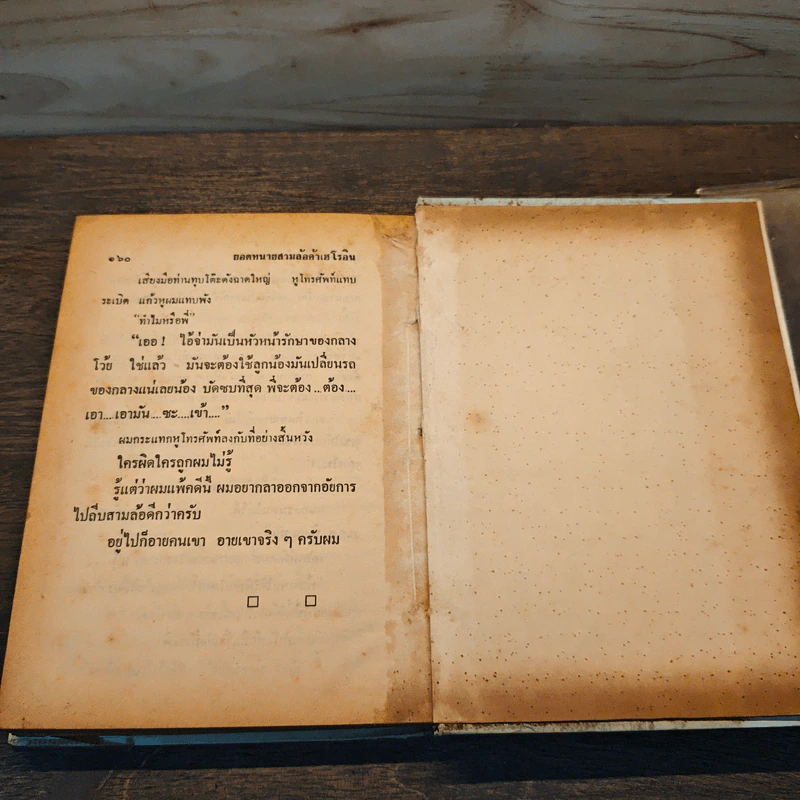 ๑๖๐ ยอดทนายสามล้อค้าเฮโรอิน
เสียงมือท่านทุบโต๊ะดังฉาดใหญ่ หูโทรศัพท์แทบ
ระเบิด แก้วหูผมแทบพัง
“ทำไมหรือพี่”
“เออ ! ไอ้จ่ามันเป็นหัวหน้ารักษาของกลาง
โว้ย ใช่แล้ว มันจะต้องใช้ลูกน้องมันเปลี่ยนรถ
ของกลางแน่เลยน้อง บัดซบที่สุด พี่จะต้อง...ต้อง...
เอา....เอามัน....ซะ....เข้า....”
ผมกระแทกหูโทรศัพท์ลงกับที่อย่างสิ้นหวัง
ใครผิดใครถูกผมไม่รู้
รู้แต่ว่าผมแพ้คดีนี้ ผมอยากลาออกจากอัยการ
ไปถีบสามล้อดีกว่าครับ
อยู่ไปก็อายคนเขา อายเขาจริง ๆ ครับผม